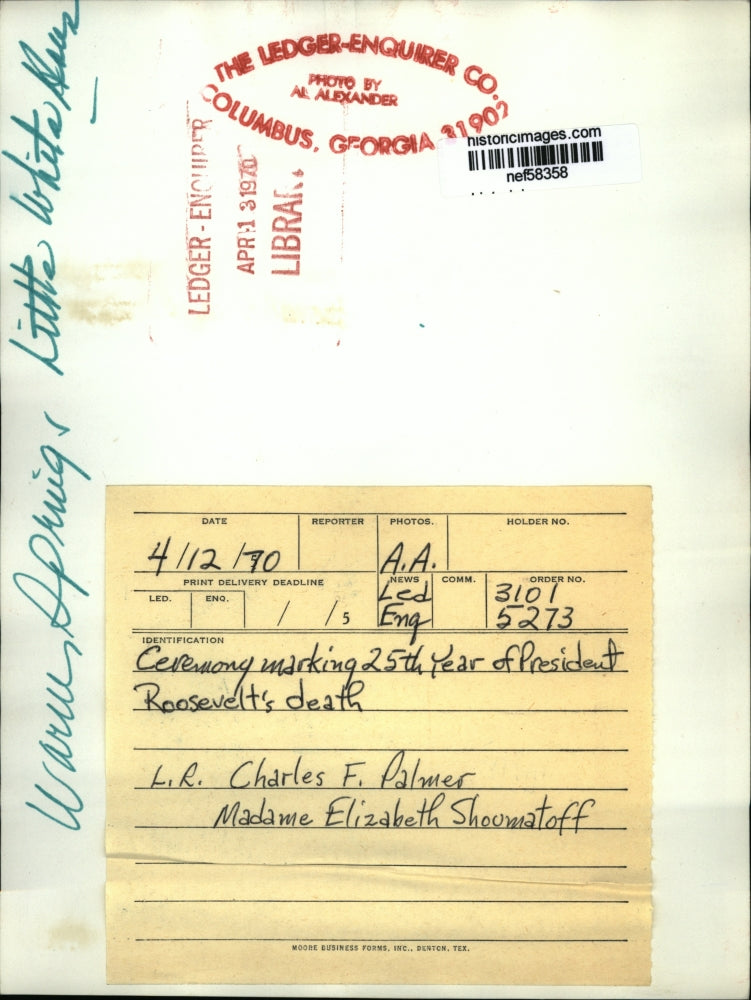 THE LEDGER-ENQUIRER CO.
PHOTO BY
AL ALEXANDER
COLUMBUS, GEORGIA 31902
historicimages.com
nef58358
LEDGER-ENQUIRER
APR 13 1970
LIBRARY
Warm Springs Little White House
DATE
REPORTER
PHOTOS.
HOLDER NO.
4/12/70
A.A.
PRINT DELIVERY DEADLINE
NEWS
COMM.
ORDER NO.
LED.
ENQ.
Led
3101
/ / 5
Enq
5273
IDENTIFICATION
Ceremony marking 25th Year of President
Roosevelt's death
L.R. Charles F. Palmer
Madame Elizabeth Shoumatoff
MOORE BUSINESS FORMS, INC., DENTON, TEX.